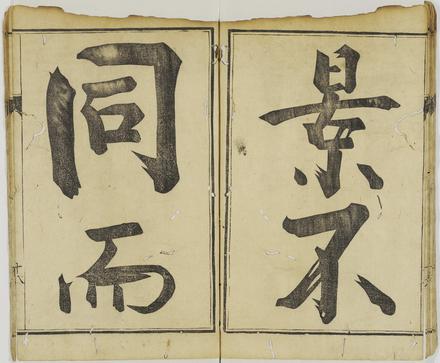 景不
同而